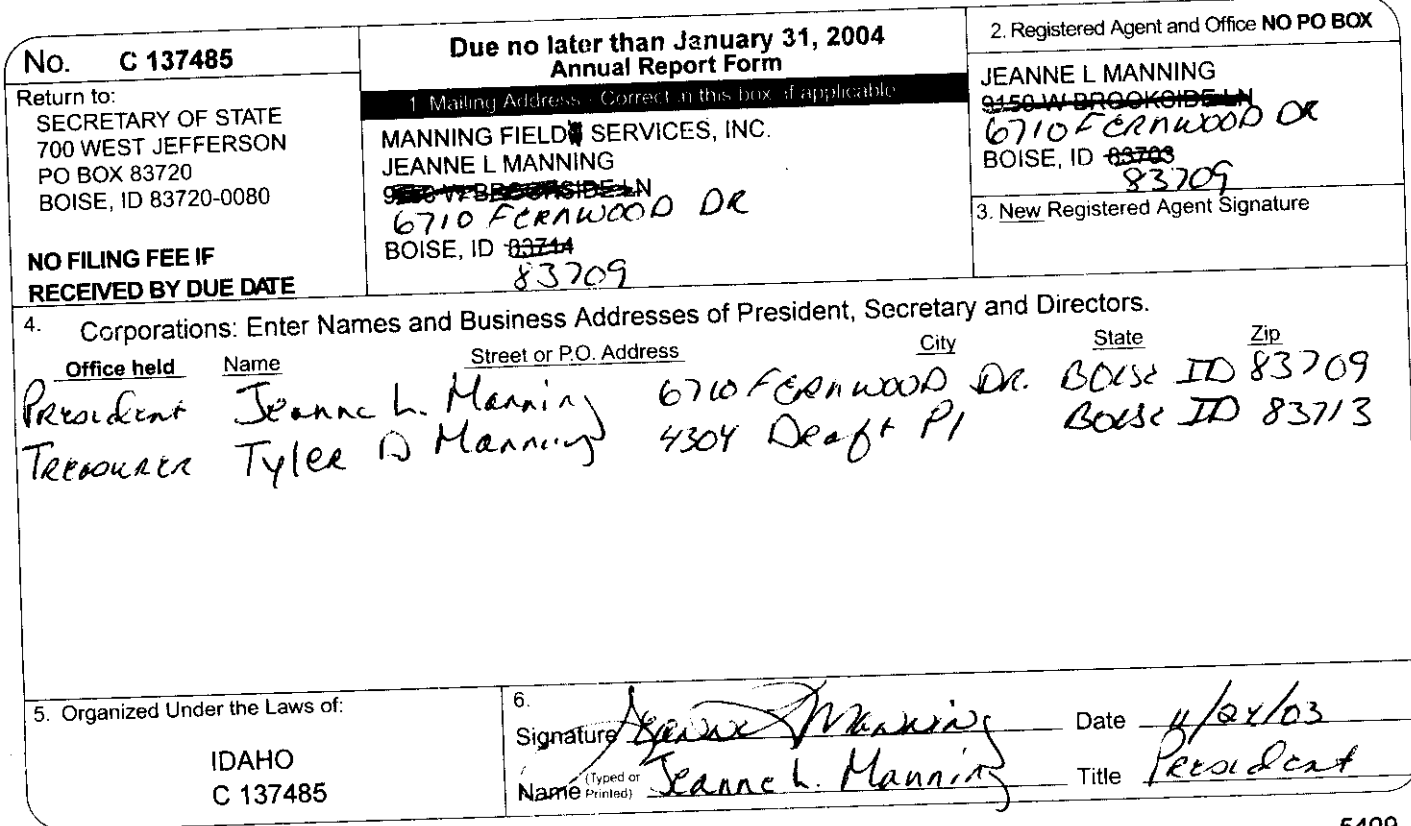 No. C 137485
Return to:
SECRETARY OF STATE
700 WEST JEFFERSON
PO BOX 83720
BOISE, ID 83720-0080
NO FILING FEE IF
RECEIVED BY DUE DATE
Due no later than January 31, 2004
Annual Report Form
1. Mailing Address - Correct in this box, if applicable
MANNING FIELD SERVICES, INC.
JEANNE L MANNING
6710 FERNWOOD DR
BOISE, ID 83714
83709
2. Registered Agent and Office NO PO BOX
JEANNE L MANNING
9150 W BROOKSIDE LN
6710 FERNWOOD DR
BOISE, ID 83703
83709
3. New Registered Agent Signature
4. Corporations: Enter Names and Business Addresses of President, Secretary and Directors.
Office held Name Street or P.O. Address City State Zip
President Jeanne L. Manning 6710 FERNWOOD DR. BOISE ID 83709
TREASURER Tyler D Manning 4304 Pl BOISE ID 83713
5. Organized Under the Laws of:
IDAHO
C 137485
6.
Signature Jeanne Manning Date 11/24/03
Name (Typed or Printed) Jeanne L. Manning Title President
5409